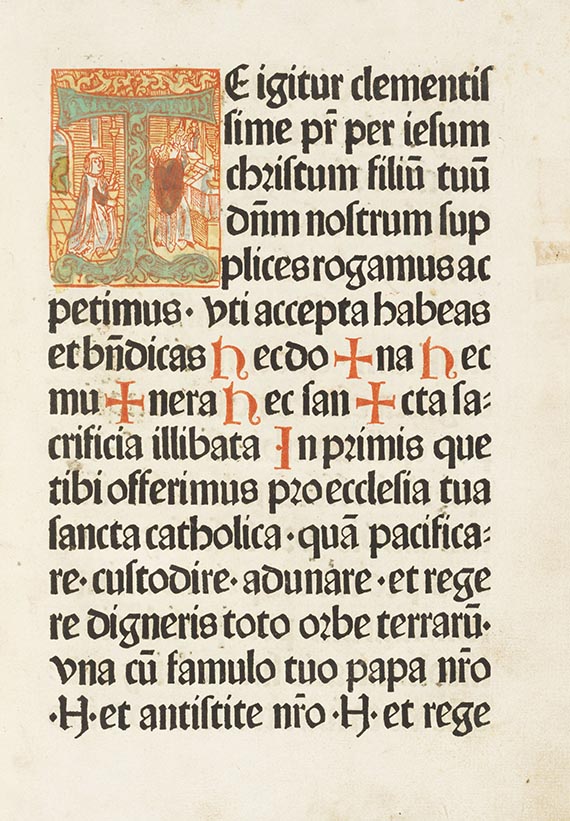 TE igitur clementiſ
ſime pr̄ per ieſum
chriſtum filiū tuū
dn̄m noſtrum ſup
plices rogamus ac
petimus· vti accepta habeas
et bn̄dicas hec do ✝ na hec
mu ✝ nera hec ſan ✝ cta ſa⸗
crificia illibata In primis que
tibi offerimus pro eccleſia tua
ſancta catholica · quā pacifica⸗
re· cuſtodire· adunare · et rege
re digneris toto orbe terrarū·
vna cū famulo tuo papa nr̄o
·N· et antiſtite nr̄o ·N· et rege